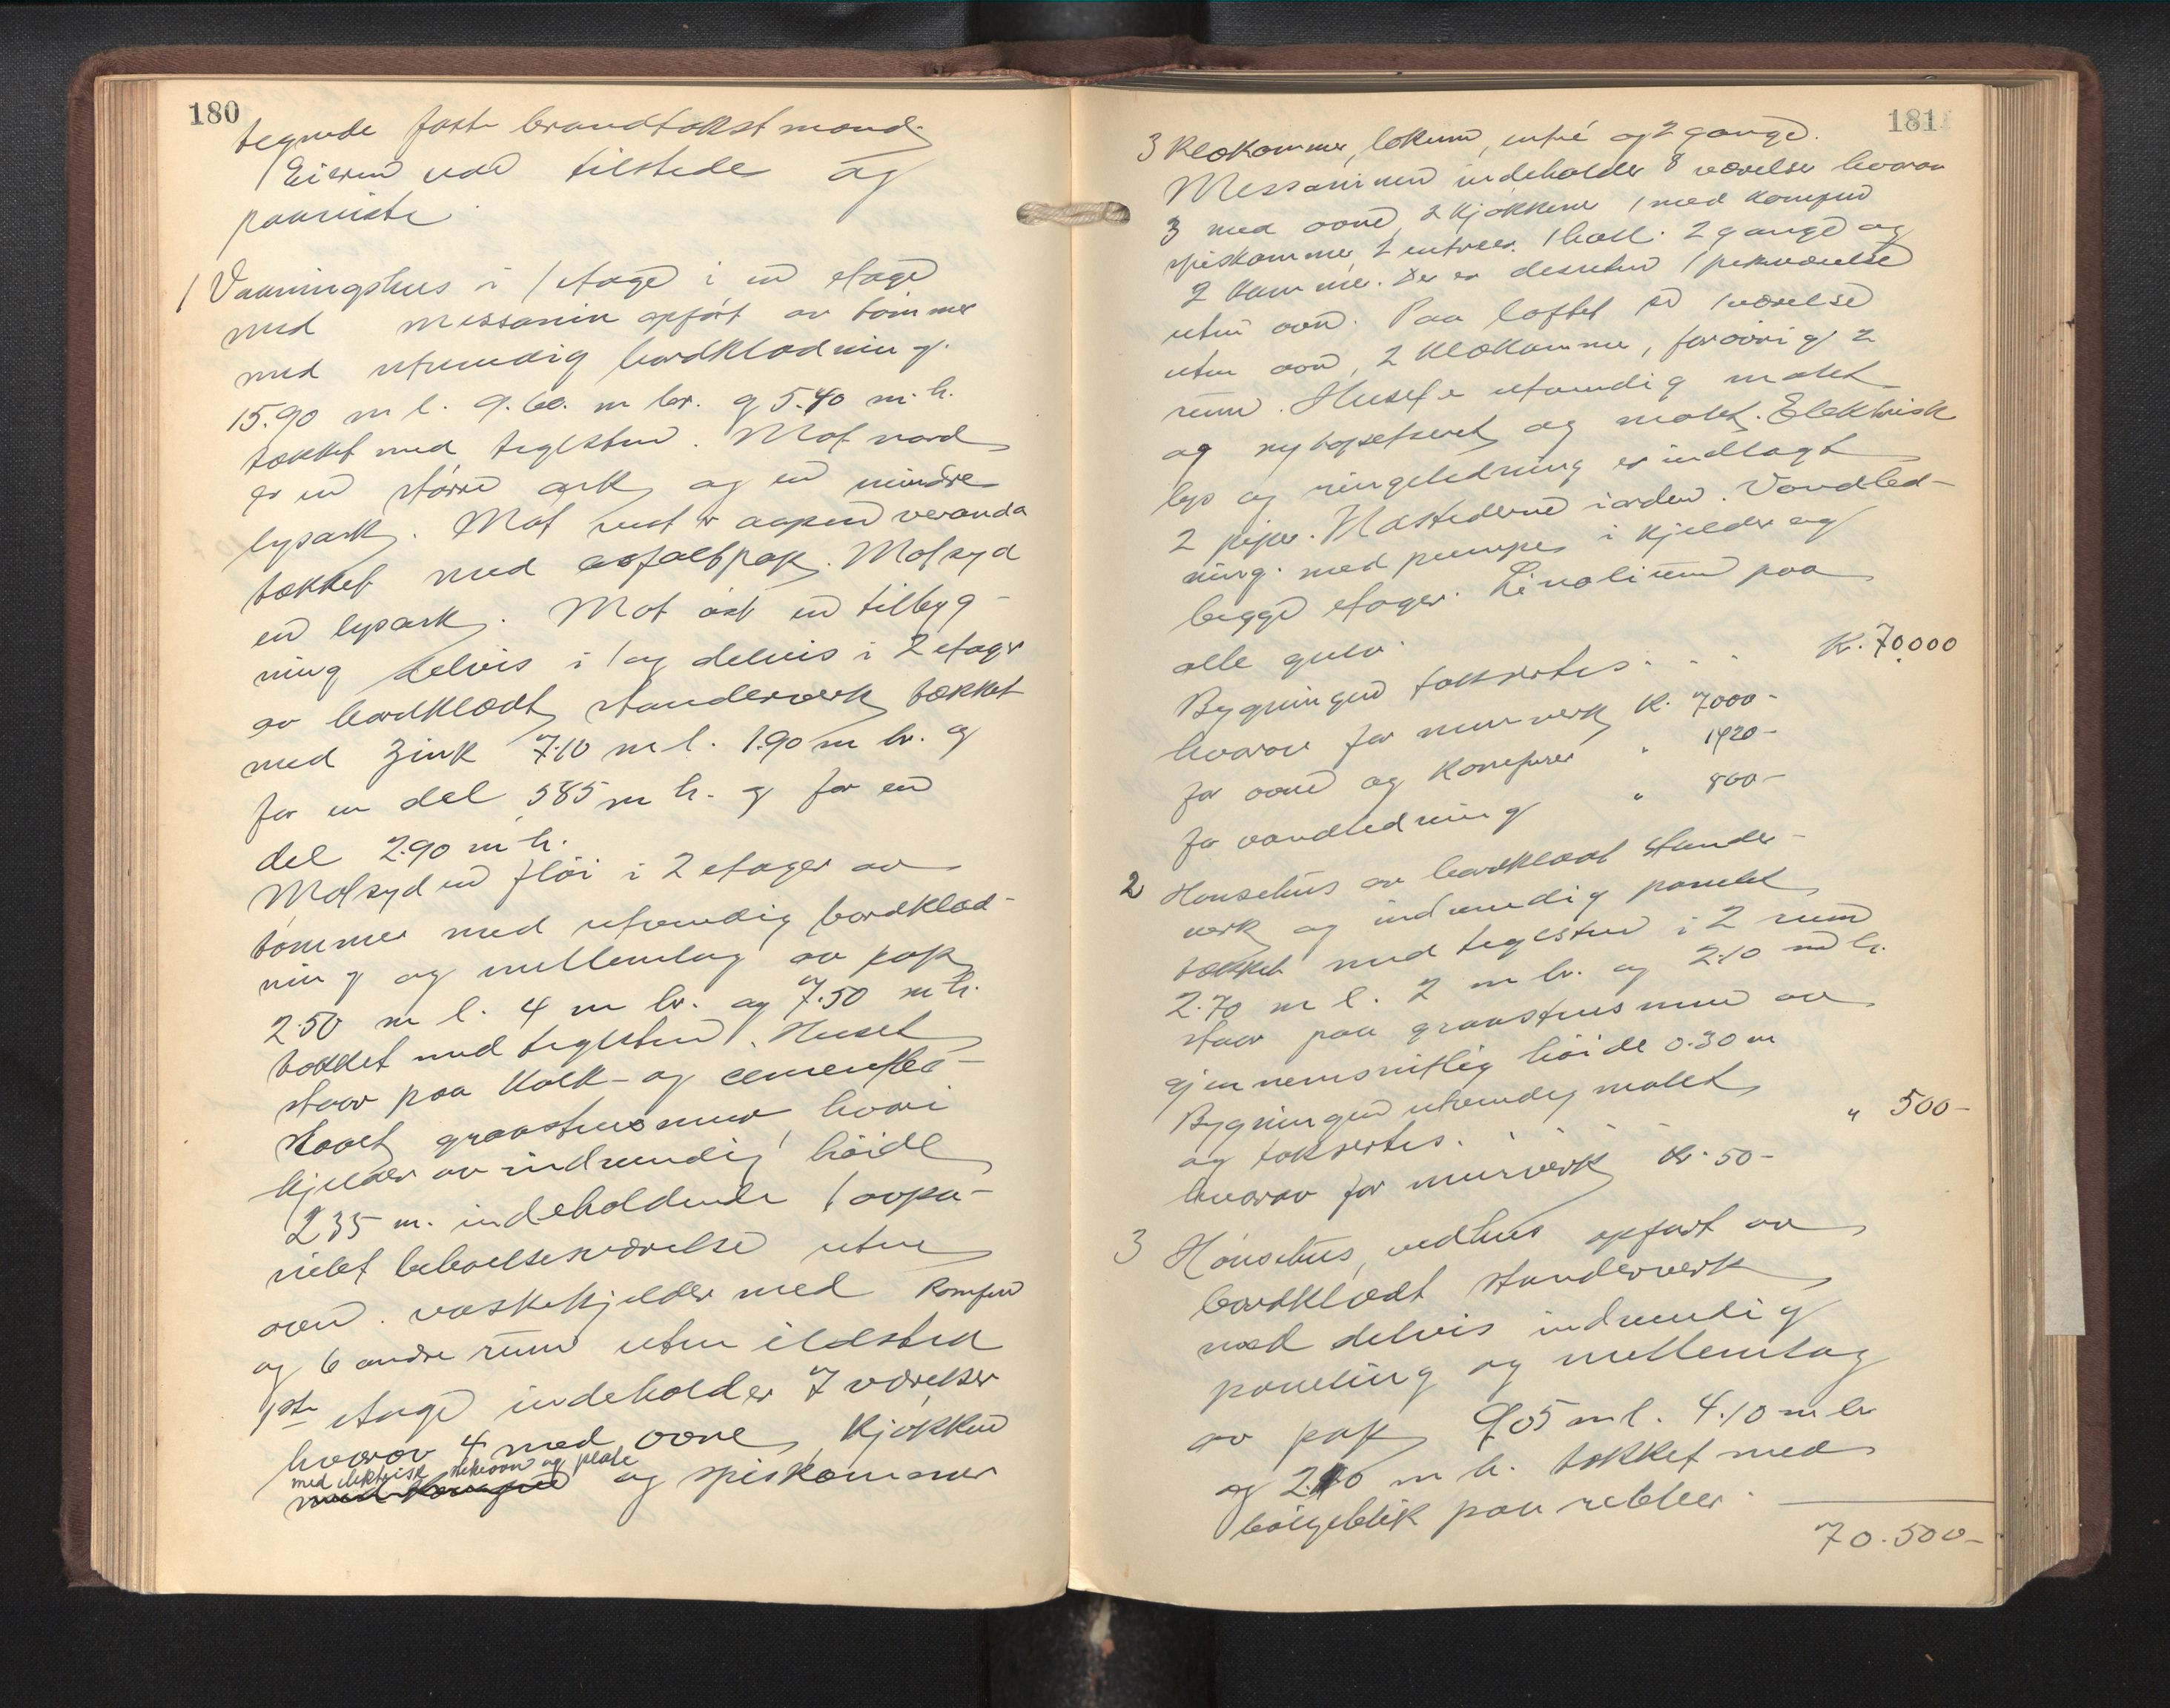 180
tegnede faste brandtakstmænd.
Eieren var tilstede og
paaviste.
1 Vaaningshus i 1 etage i en etage
med messanin opført av tømmer
med utvendig bordklædning.
15.90 m l. 9.60. m br. og 5.40 m. h.
tækket med teglsten. Mot nord
er en større ark og en mindre
lysark. Mot vest er aapen veranda
tækket med asfaltpap. Mot syd
en lysark. Mot øst en tilbyg-
ning delvis i 1 og delvis i 2 etager
av bordklædt standerverk tækket
med zink 7.10 m l. 1.90 m br. og
for en del 585 m h. og for en
del 2.90 m h.
Mot syd en fløi i 2 etager av
tømmer med utvendig bordklæd-
ning og mellemlag av pap
2.50 m l. 4 m br. og 7.50 m h.
tækket med teglsten. Huset
staar paa kalk- og cementsla-
skaaet graastensmur, hvori
kjelder av indvendig høide
2 35 m. indeholdende 1
beboelsesværelse uten
ovn. vaskekjelder med komfur
og 6 andre rum uten ildsted
1ste etage indeholder 7 værelser
hvorav 4 med ovne, kjøkken
med elektrisk stekeovn og plate
med komfur og spiskammer
181
3 klækammer, lokum, entré og 2 gange.
Messaninen indeholder 8 værelser hvorav
3 med ovne, 2 kjøkkene 1 med komfur
spiskammer, 2 entreer. 1 hall. 2 gange og
2 kammer. Der er desuten 1 pikeværelse
uten ovn. Paa loftet er 1 værelse
uten ovn, 2 klækammer, forøvrig 2
rum. Huset er utvendig malet
og nytapetseret og malet. Elektrisk
lys og ringeledning er indlagt
2 piper. Ildstederne i orden. Vandled-
ning. med pumpe i kjelder og
begge etager. Linolium paa
alle gulv.
Bygningen taksertes . . . K. 70.000
hvorav for murverk K. 7000-
for ovne og komfurer " 1420-
for vandledning " 800-
2 Hønsehus av bordklædt stander-
verk og indvendig panelet
tækket med teglsten i 2 rum
2.70 m l. 2 m br. og 2.10 m h.
staar paa graastensmur av
gjennemsnitlig høide 0.30 m
Bygningen utvendig malet
og taksertes. . . . . " 500-
hvorav for murverk Kr. 50-
3 Hønsehus, vedhus opført av
bordklædt standerverk
med delvis indvendig
paneling og mellemlag
av pap 9.05 m l. 4.10 m br
og 2.10 m h. tækket med
bølgeblik paa rebler.
70.500-